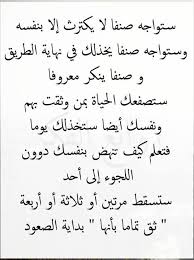 ستواجه صنفا لا يكترث إلا بنفسه
وستواجه صنفا يخذلك في نهاية الطريق
و صنفا ينكر معروفا
ستصفعك الحياة بمن وثقت بهم
ونفسك أيضا ستخذلك يوما
فتعلم كيف تنهض بنفسك دوون
اللجوء إلى أحد
ستسقط مرتين أو ثلاثة أو أربعة
" ثق تماما بأنها " بداية الصعود